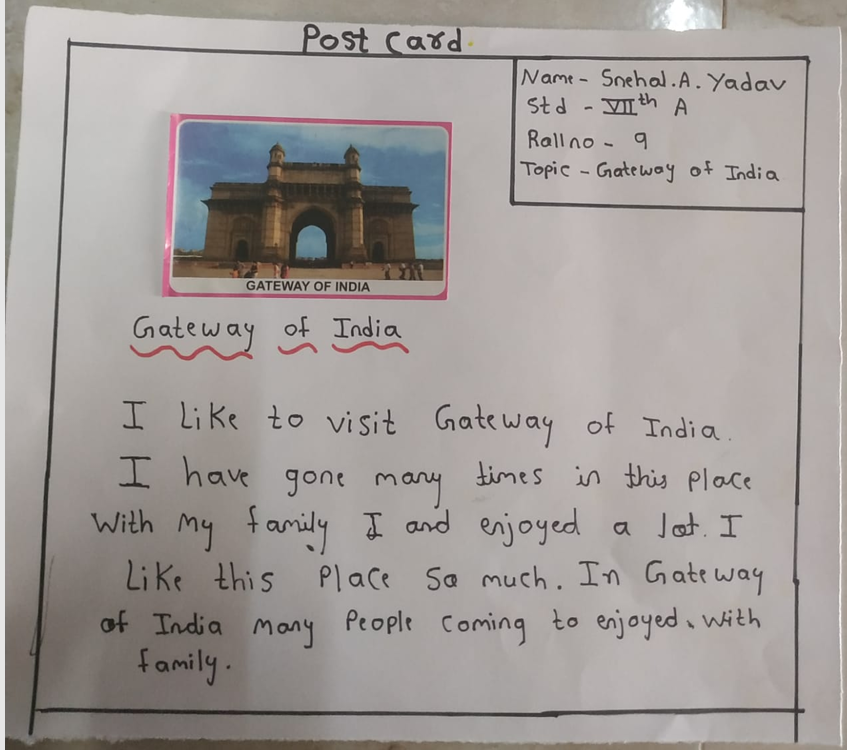 Post Card
Name - Snehal.A. Yadav
Std - VIIth A
Rollno - 9
Topic - Gateway of India
GATEWAY OF INDIA
Gateway of India
I Like to visit Gateway of India.
I have gone many times in this place
With my family I and enjoyed a lot. I
Like this Place so much. In Gateway
of India many People coming to enjoyed. with
family.